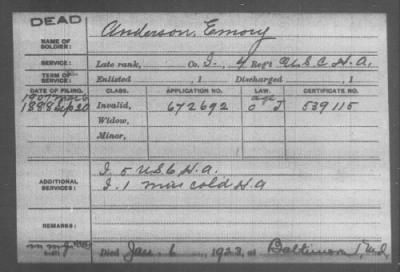 DEAD
NAME OF SOLDIER: Anderson, Emory
SERVICE: Late rank, Co. I., 4 Reg't U.S.C.H.A.
TERM OF SERVICE: Enlisted , 1 Discharged , 1
DATE OF FILING. CLASS. APPLICATION NO. LAW. CERTIFICATE NO.
1907 Mar 6 age
1888 Sep 20 Invalid, 672692 O J 539115
Widow,
Minor,
ADDITIONAL SERVICES: I 5 U.S.C.H.A.
I. 1 Mas cold H.A
REMARKS:
Died Jan. 6, 1923, at Baltimore, Md.